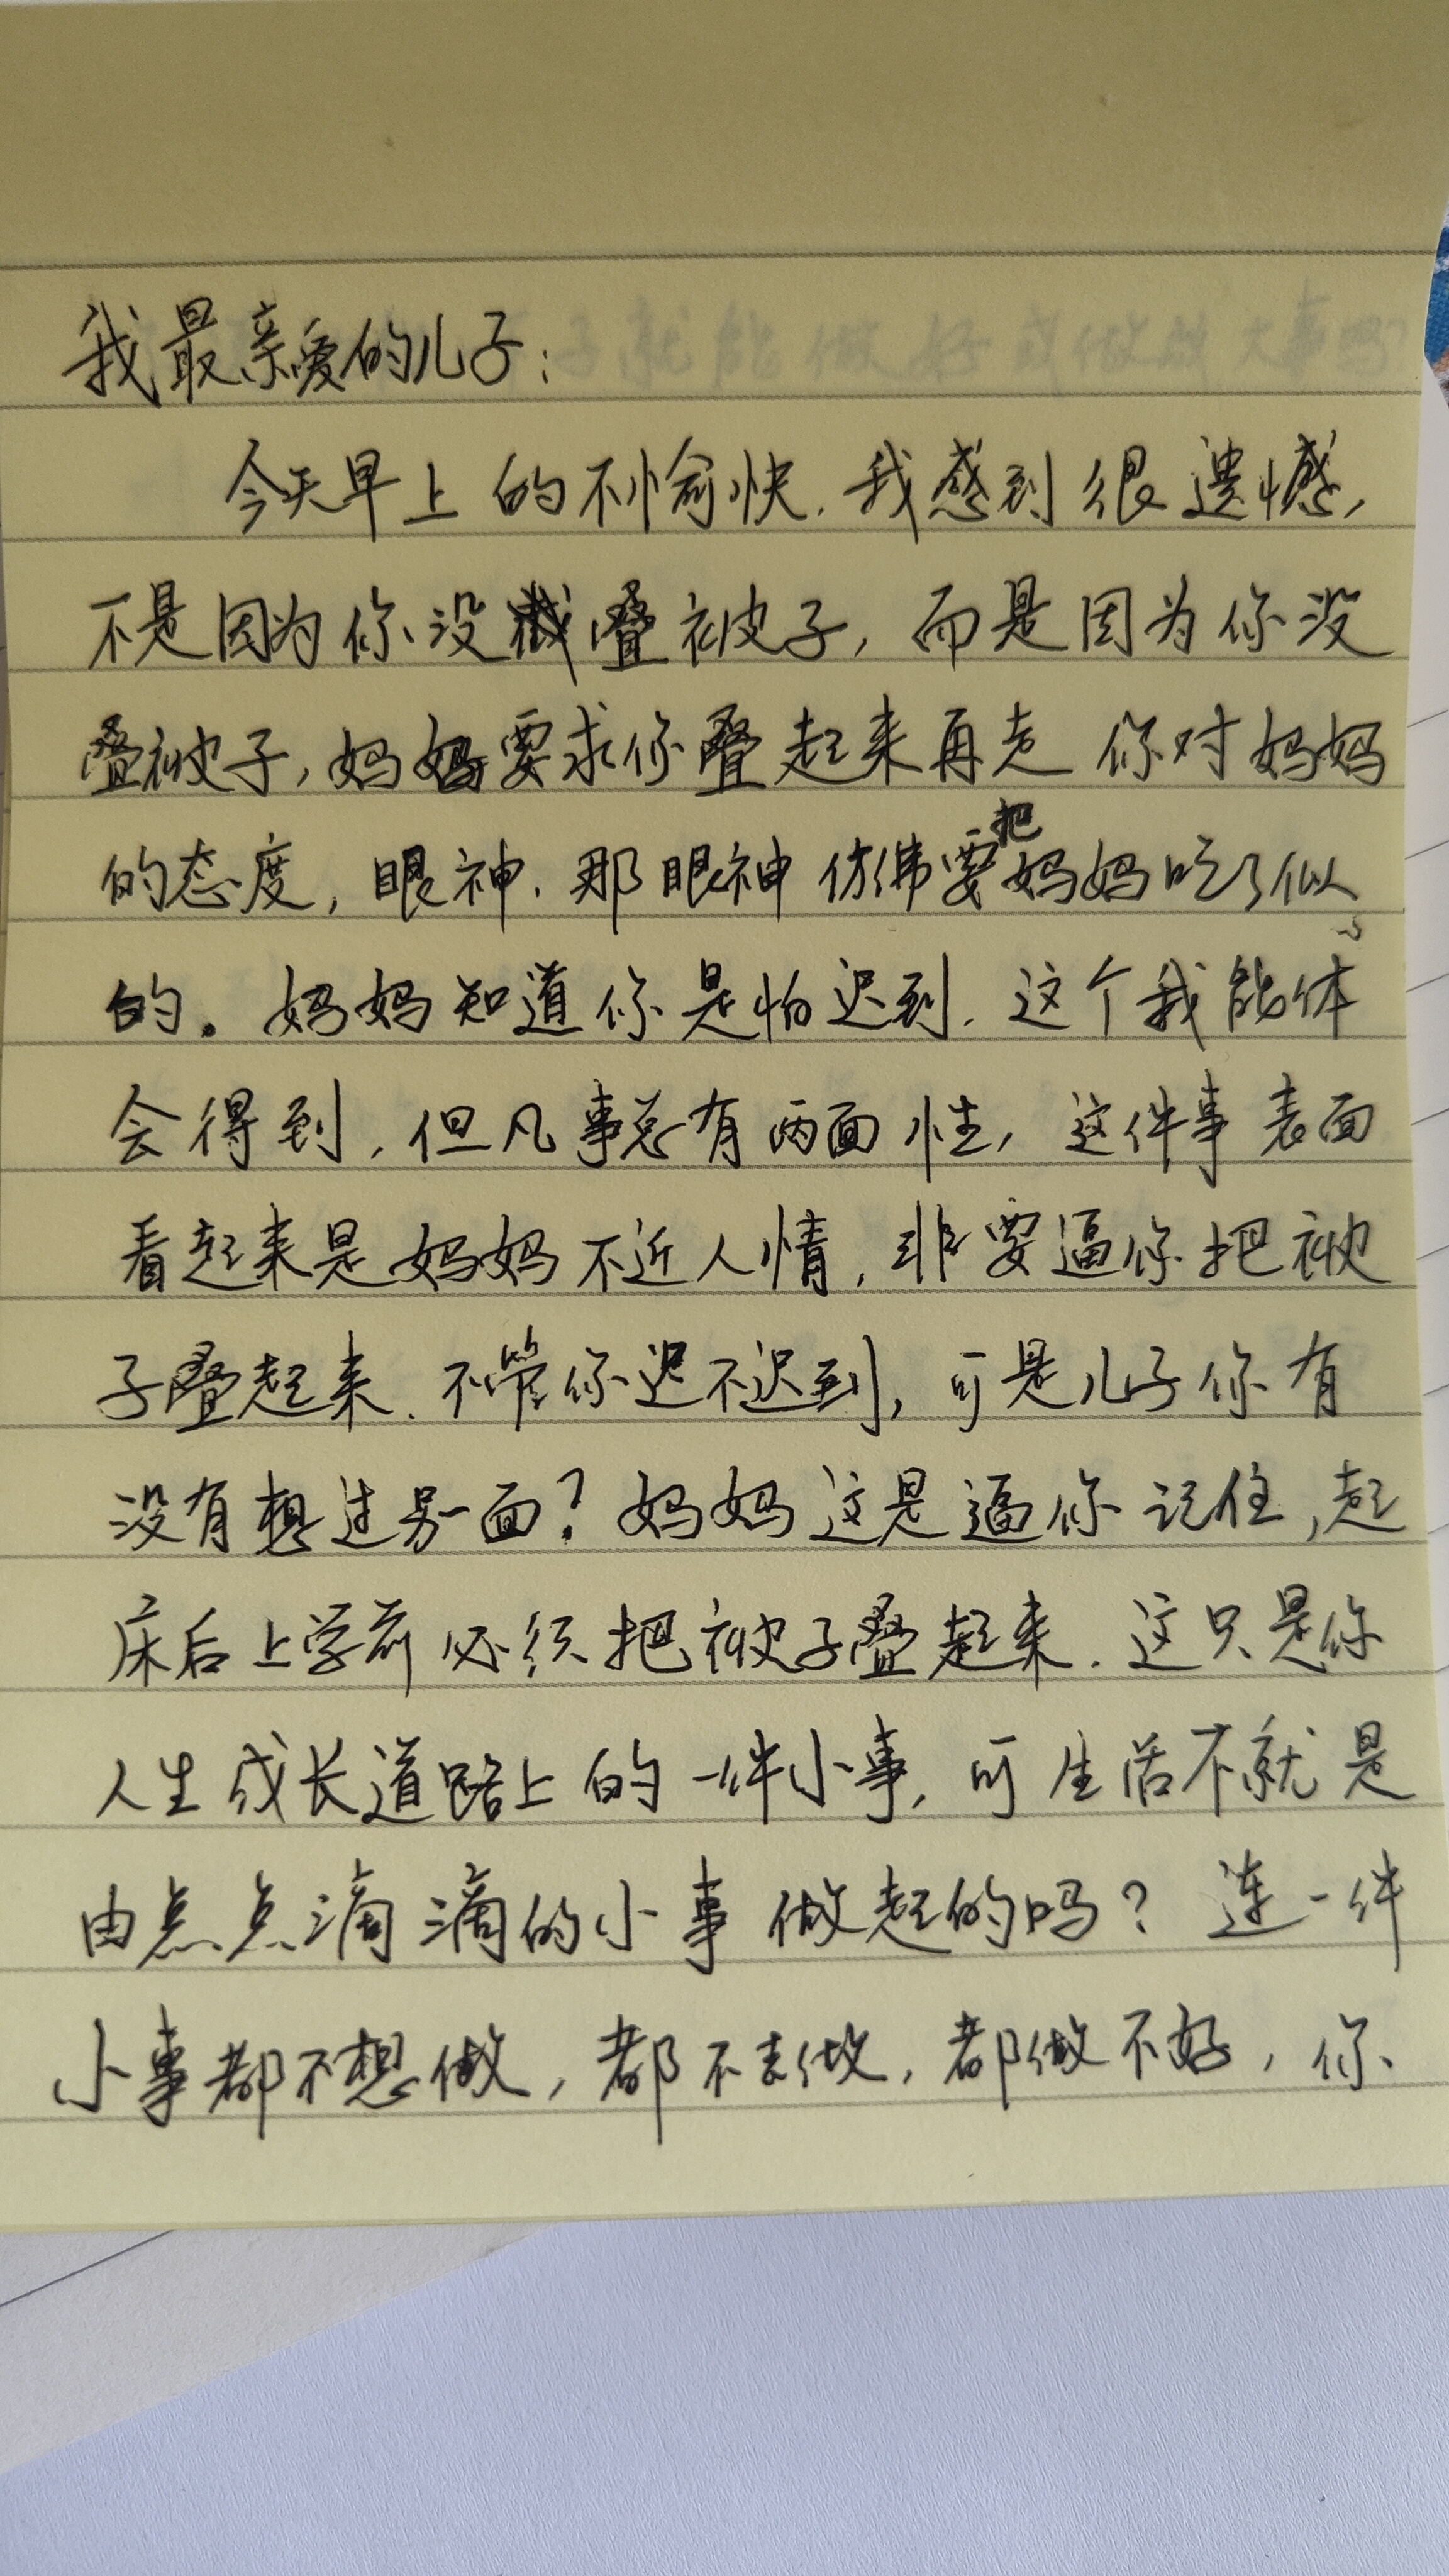 我最亲爱的儿子:
今天早上的不愉快.我感到很遗憾,
不是因为你没叠被子,而是因为你没
叠被子,妈妈要求你叠起来再走 你对妈妈
的态度,眼神.那眼神仿佛要把妈妈吃了似
的。妈妈知道你是怕迟到.这个我能体
会得到.但凡事总有两面性,这件事表面
看起来是妈妈不近人情,非要逼你把被
子叠起来.不管你迟不迟到,可是儿子你有
没有想过另一面?妈妈这是逼你记住,起
床后上学前必须把被子叠起来.这只是你
人生成长道路上的一件小事,可生活不就是
由点点滴滴的小事做起的吗?连一件
小事都不想做,都不去做,都做不好,你